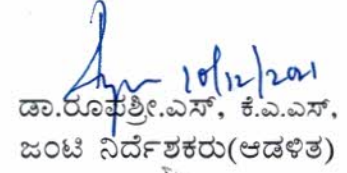 10/12/2021
ಡಾ.ರೂಪಶ್ರೀ.ಎಸ್, ಕೆ.ಎ.ಎಸ್,
ಜಂಟಿ ನಿರ್ದೇಶಕರು(ಆಡಳಿತ)